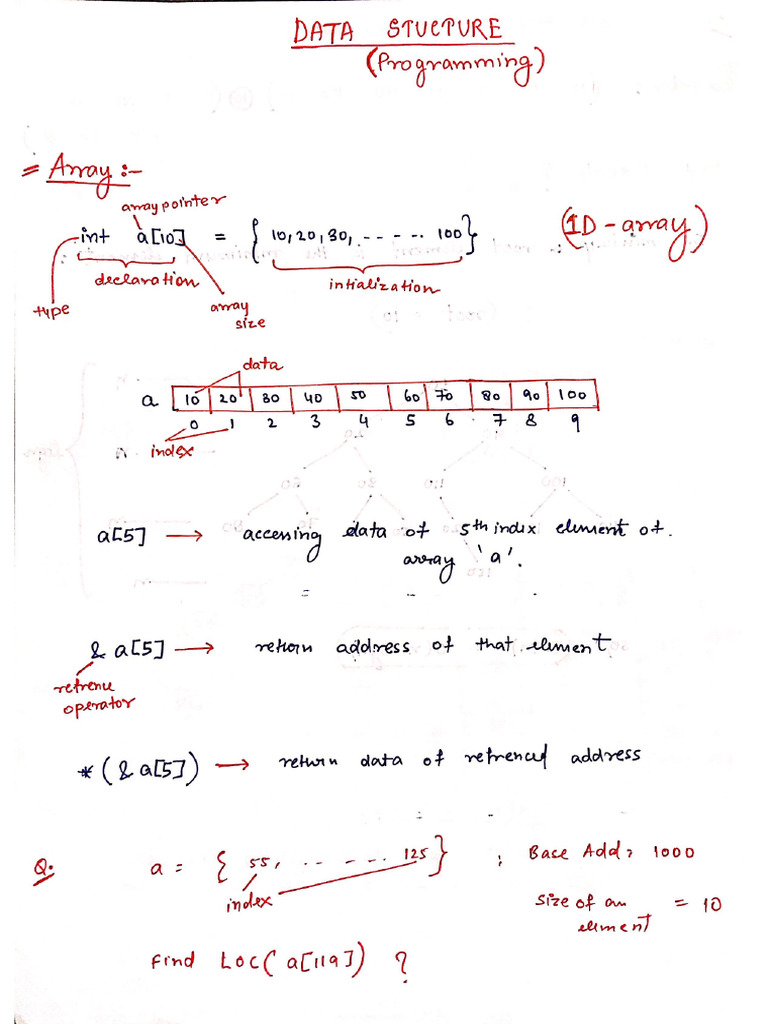 DATA STUCTURE
(Programming)
= Array :-
array pointer
int a[10] = { 10, 20, 30, ----- 100 } (1D - array)
declaration intialization
type array size
data
a 10 20 30 40 50 60 70 80 90 100
0 1 2 3 4 5 6 7 8 9
index
a[5] → accessing data of 5th index element of
array 'a'.
& a[5] → return address of that element
refrence
operator
* (& a[5]) → return data of refrenced address
Q. a = { 55, ------ 125 } ; Base Add = 1000
index
Size of an element = 10
Find LOC( a[119] ) ?